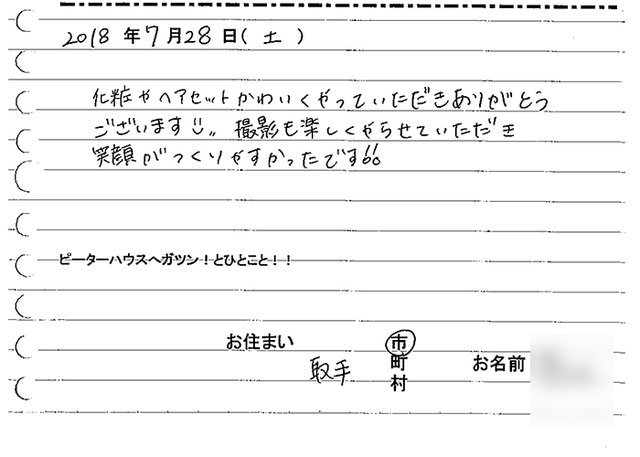 2018 年 7 月 28 日( 土 )
化粧やヘアセットかわいくやっていただきありがとう
ございます。撮影も楽しくやらせていただき
笑顔がつくりやすかったです!!
ピーターハウスへガツン!とひとこと!!
お住まい 取手 市 町 村 お名前